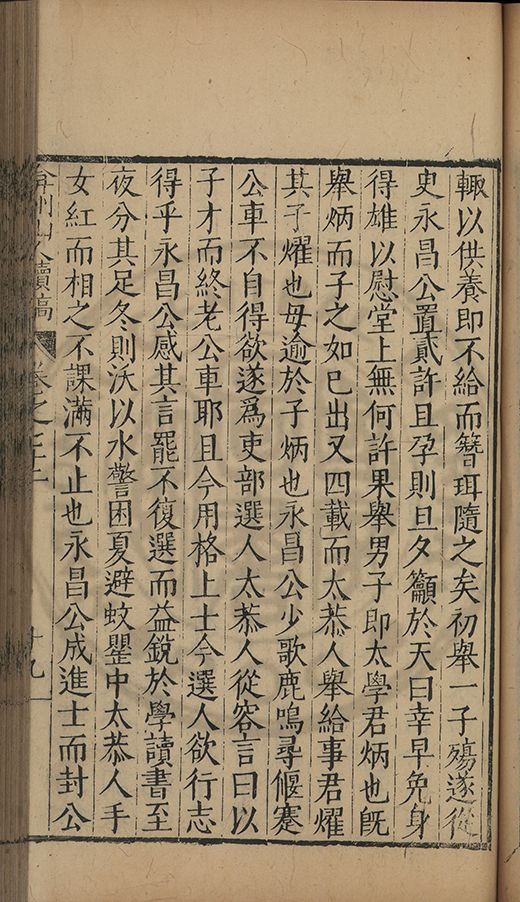 輙以供養即不給而簪珥隨之矣初舉一子殤遂從
史永昌公置貳許且孕則旦夕籲於天曰幸早免身
得雄以慰堂上無何許果舉男子即太學君炳也旣
舉炳而子之如已出又四載而太恭人舉給事君燿
其子燿也毋逾於子炳也永昌公少歌鹿鳴尋偃蹇
公車不自得欲遂爲吏部選人太恭人從容言曰以
子才而終老公車耶且今用格上士今選人欲行志
得乎永昌公感其言罷不復選而益銳於學讀書至
夜分其足冬則沃以水警困夏避蚊罌中太恭人手
女紅而相之不課滿不止也永昌公成進士而封公
弇州山人續稿 卷之 十九